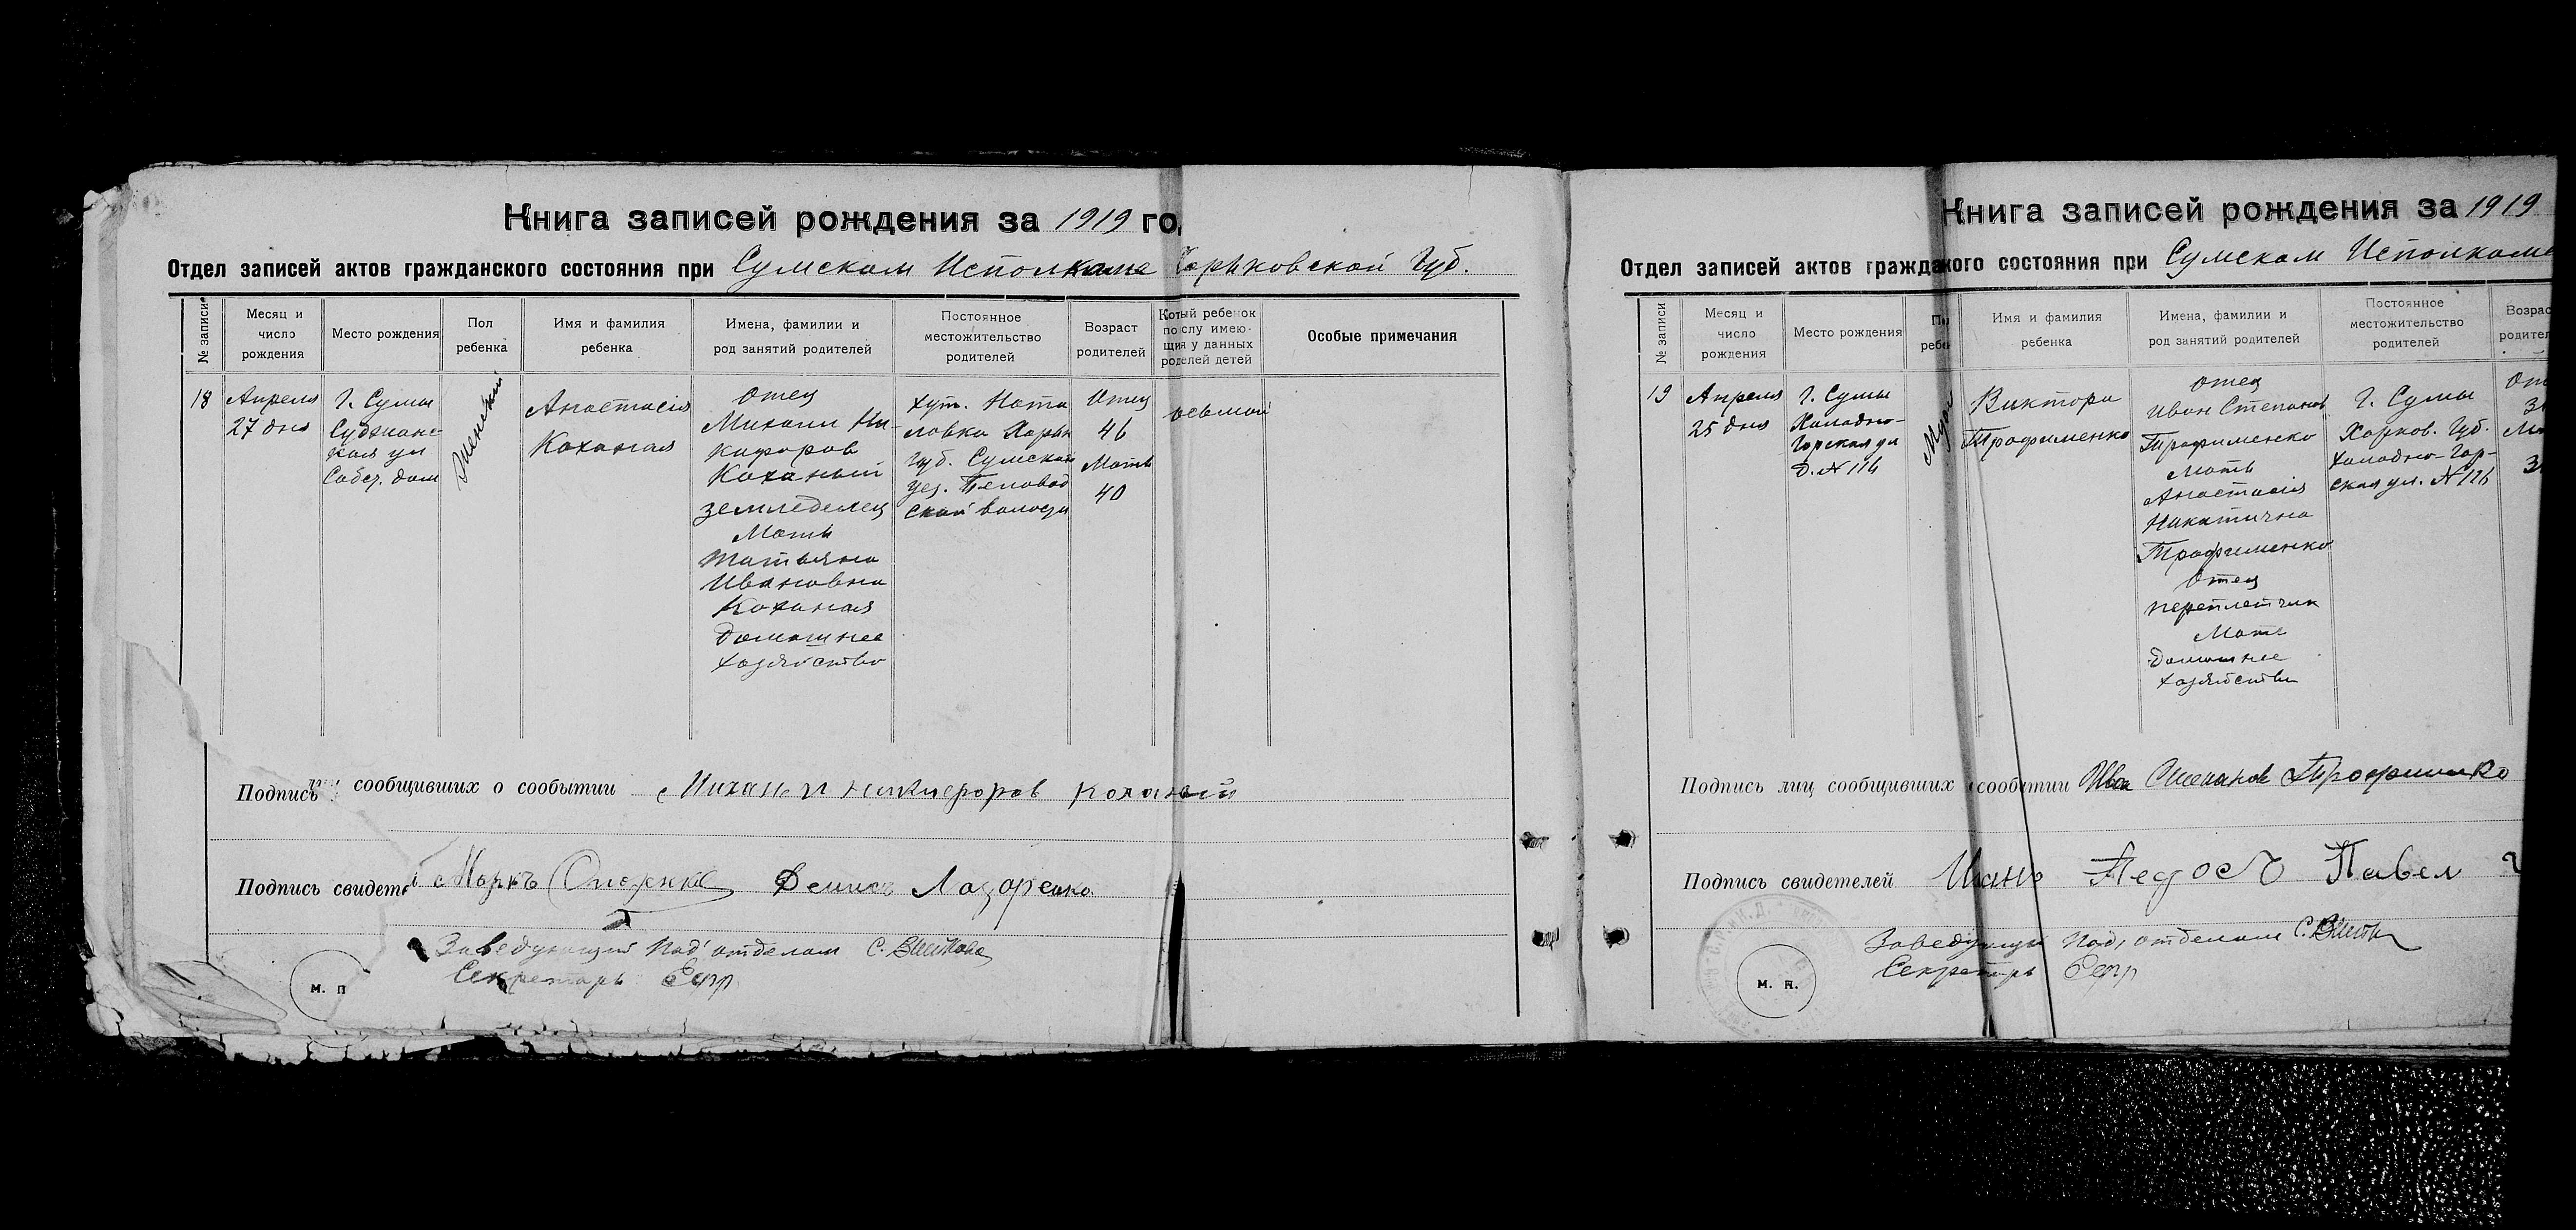 Книга записей рождения за 1919 го
Отдел записей актов гражданского состояния при Сумском Исполкоме Харьковской Губ.
№ записи
Месяц и
число
рождения
Место рождения
Пол
ребенка
Имя и фамилия
ребенка
Имена, фамилии и
род занятий родителей
Постоянное
местожительство
родителей
Возраст
родителей
Котый ребенок
по слу имею-
щия у данных
родлей детей
Особые примечания
18
Апреля
27 дня
г. Сумы
Суджанс-
кая ул
Собст. дом
Женский
Анастасия
Коханая
Отец
Михаил Ни-
кифоров
Коханый
земледелец
Мать
Татьяна
Ивановна
Коханая
Домашнее
хозяйство
хут. Ната
ловка Харьк
Губ. Сумской
уез.
ской волости
Отец
46
Мать
40
осьмой
Подпись лиц сообщивших о сообытии Михаил Никифоров Коханый
Подпись свидете Маркъ Денис Лазаренко
Заведующий Под'отделом С.
Секретарь
м. п
Книга записей рождения за 1919
Отдел записей актов граждакого состояния при Сумском Исполкоме
№ записи
Месяц и
число
рождения
Место рождения
По
ребе
Имя и фамилия
ребенка
Имена, фамилии и
род занятий родителей
Постоянное
местожительство
родителей
Возрас
родител
19
Апреля
25 дня
г. Сумы
Холодно-
Горская ул
д. № 116
Муж
Виктор
Трофименко
Отец
Иван Степанов
Трофименко
Мать
Анастасия
Никитична
Трофименко
Отец
переплетчик
Мать
Домашнее
хозяйство
г. Сумы
Харков. Губ.
Холодно-Гор-
ская ул. № 116
От
3
Ма
3
Подпись лиц сообщивших сообытии Иван Степанов Трофименко
Подпись свидетелей Иванъ Федосъ Павел
Заведующий Под'отделом С.
Секретарь
м. п.